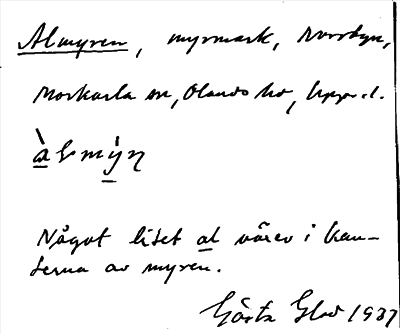 Almyren, myrmark, Norrbyn,
Morkarla sn, Olands hd, Uppr. l.
Något litet al växer i kan-
terna av myren.
Gösta Glad 1937